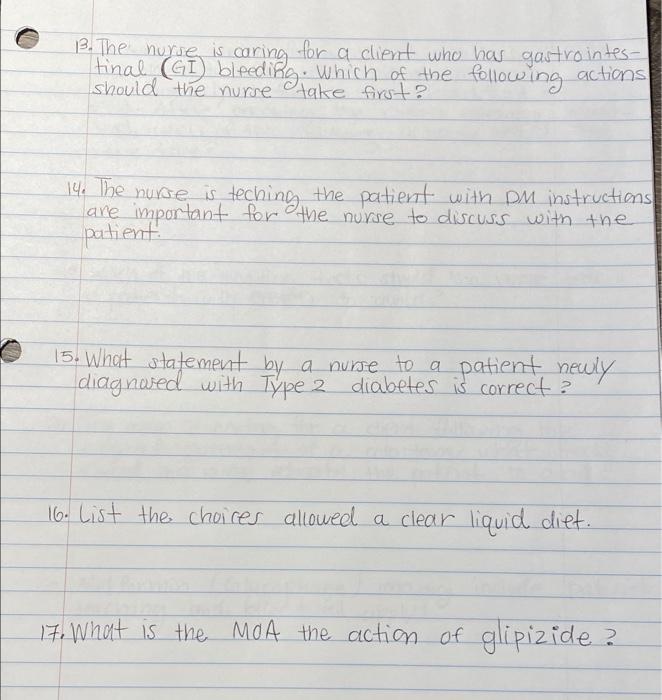 13. The nurse is caring for a client who has gastrointes-
tinal (GI) bleeding. Which of the following actions
should the nurse take first?
14. The nurse is teching the patient with DM instructions
are important for the nurse to discuss with the
patient.
15. What statement by a nurse to a patient newly
diagnosed with Type 2 diabetes is correct?
16. List the choices allowed a clear liquid diet.
17. What is the MOA the action of glipizide?